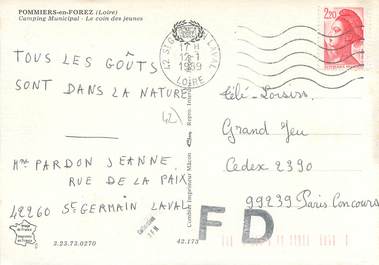 POMMIERS-en-FOREZ (Loire)
Camping Municipal - Le coin des jeunes
TOUS LES GOÛTS
SONT DANS LA NATURE
42
Mme PARDON JEANNE
RUE DE LA PAIX
42260 ST GERMAIN LAVAL
3.23.73.0270
42.173
42 ST G LAVAL
17 H
12-1
1989
LOIRE
2,20
Télé-Loisirs
Grand Jeu
Cedex 2390
99239 Paris Concours
FD